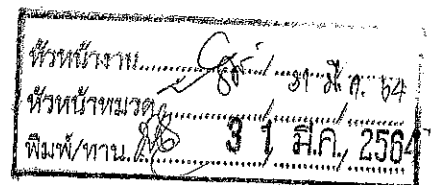 หัวหน้างาน............/ 31 มี.ค. 64
หัวหน้าหมวด............/............/............
พิมพ์/ทาน............ 31 มี.ค. 2564